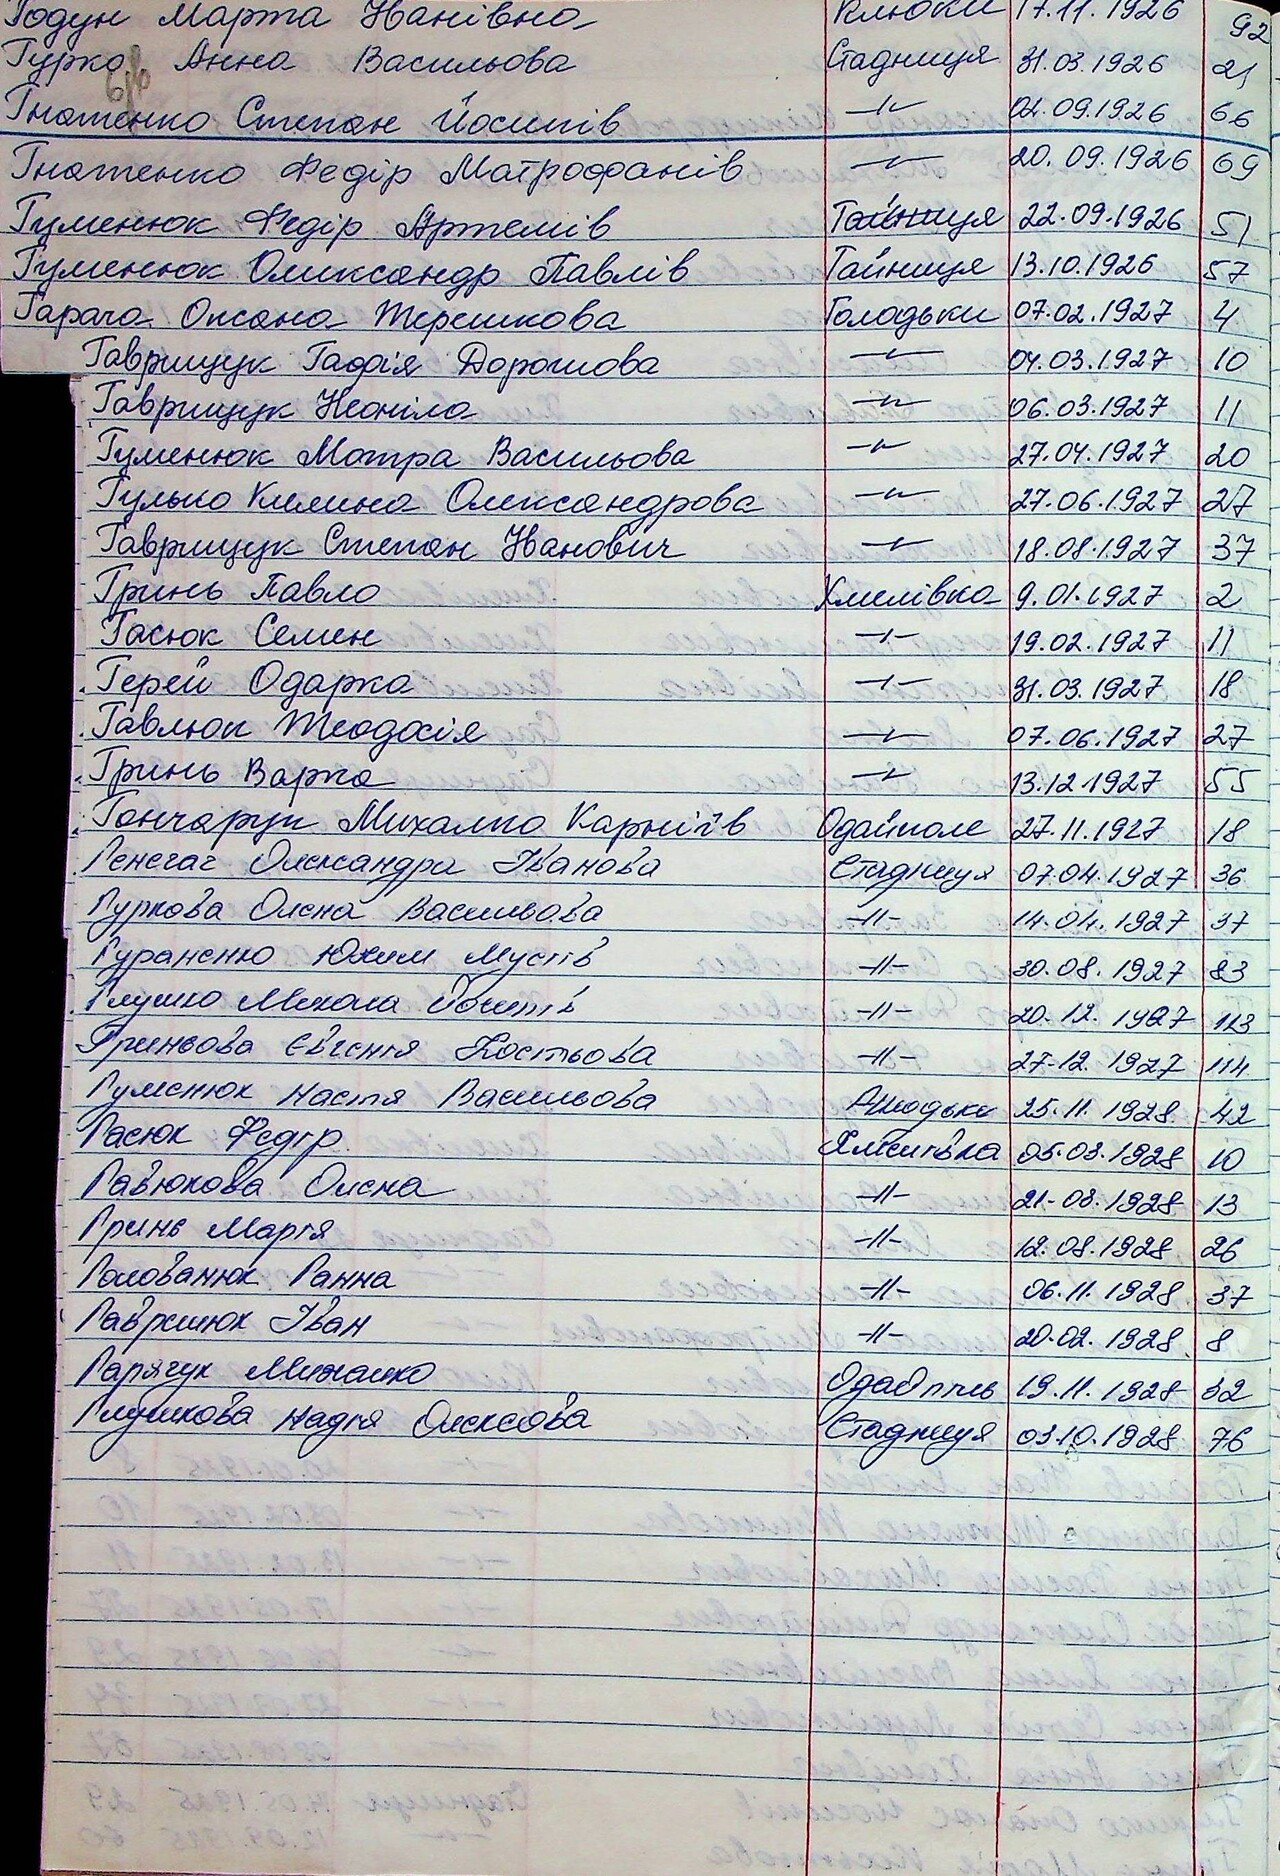 Годун Марта Іванівна Клюки 17.11.1926 92
Гурко Анна Васильова Стадниця 31.03.1926 21
Гнатенко Степан Йосипів -"- 02.09.1926 66
Гнатенко Федір Матрофанів -"- 20.09.1926 69
Гуменюк Федір Артемів Тайниця 22.09.1926 51
Гуменюк Олександр Павлів Тайниця 13.10.1926 57
Гарача Оксана Терешкова Голодьки 07.02.1927 4
Гаврищук Гафія Дорошова -"- 04.03.1927 10
Гаврищук Неоніла -"- 06.03.1927 11
Гуменюк Мотра Васильова -"- 27.04.1927 20
Гулько Килина Олександрова -"- 27.06.1927 27
Гаврищук Степан Іванович -"- 18.08.1927 37
Гринь Павло Хмелівка 9.01.1927 2
Гасюк Семен -"- 19.02.1927 11
Герей Одарка -"- 31.03.1927 18
Гавлюк Теодосія -"- 07.06.1927 27
Гринь Варка -"- 13.12.1927 55
Гончарук Михалко Карпіїв Одайполе 27.11.1927 18
Генсгач Олександра Іванова Стадниця 07.04.1927 36
Гуркова Олена Васильова -"- 14.04.1927 37
Гураненко Юхим Мусіїв -"- 30.08.1927 83
Глушко Микола -"- 20.12.1927 113
Гриньова Євгенія Костьова -"- 27.12.1927 114
Гуменюк Настя Васильова 25.11.1928 42
Гасюк Федір Хмелівка 05.03.1928 10
Гавюкова Олена -"- 21.03.1928 13
Гринь Марія -"- 12.08.1928 26
Голованюк Ганна -"- 06.11.1928 37
Гавришюк Іван -"- 20.02.1928 8
Гарячук Михалко 19.11.1928 32
Глушкова Надія Олексова Стадниця 03.10.1928 76